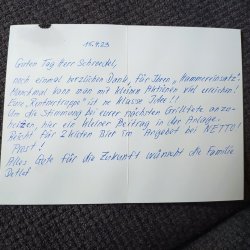 15.4.23
Guten Tag Herr Schroedel,
noch einmal herzlichen Dank, für Ihren „Hammereinsatz"
Manchmal kann man mit kleinen Aktionen viel erreichen!
Eure „Rentnertruppe" ist ne klasse Idee!!
Um die Stimmung bei eurer nächsten Grillfete anzu-
heizen, hier ein kleiner Beitrag in der Anlage.
Reicht für 2 Kisten Bier im Angebot bei NETTO!
Prost!
Alles Gute für die Zukunft wünscht die Familie
Detlof